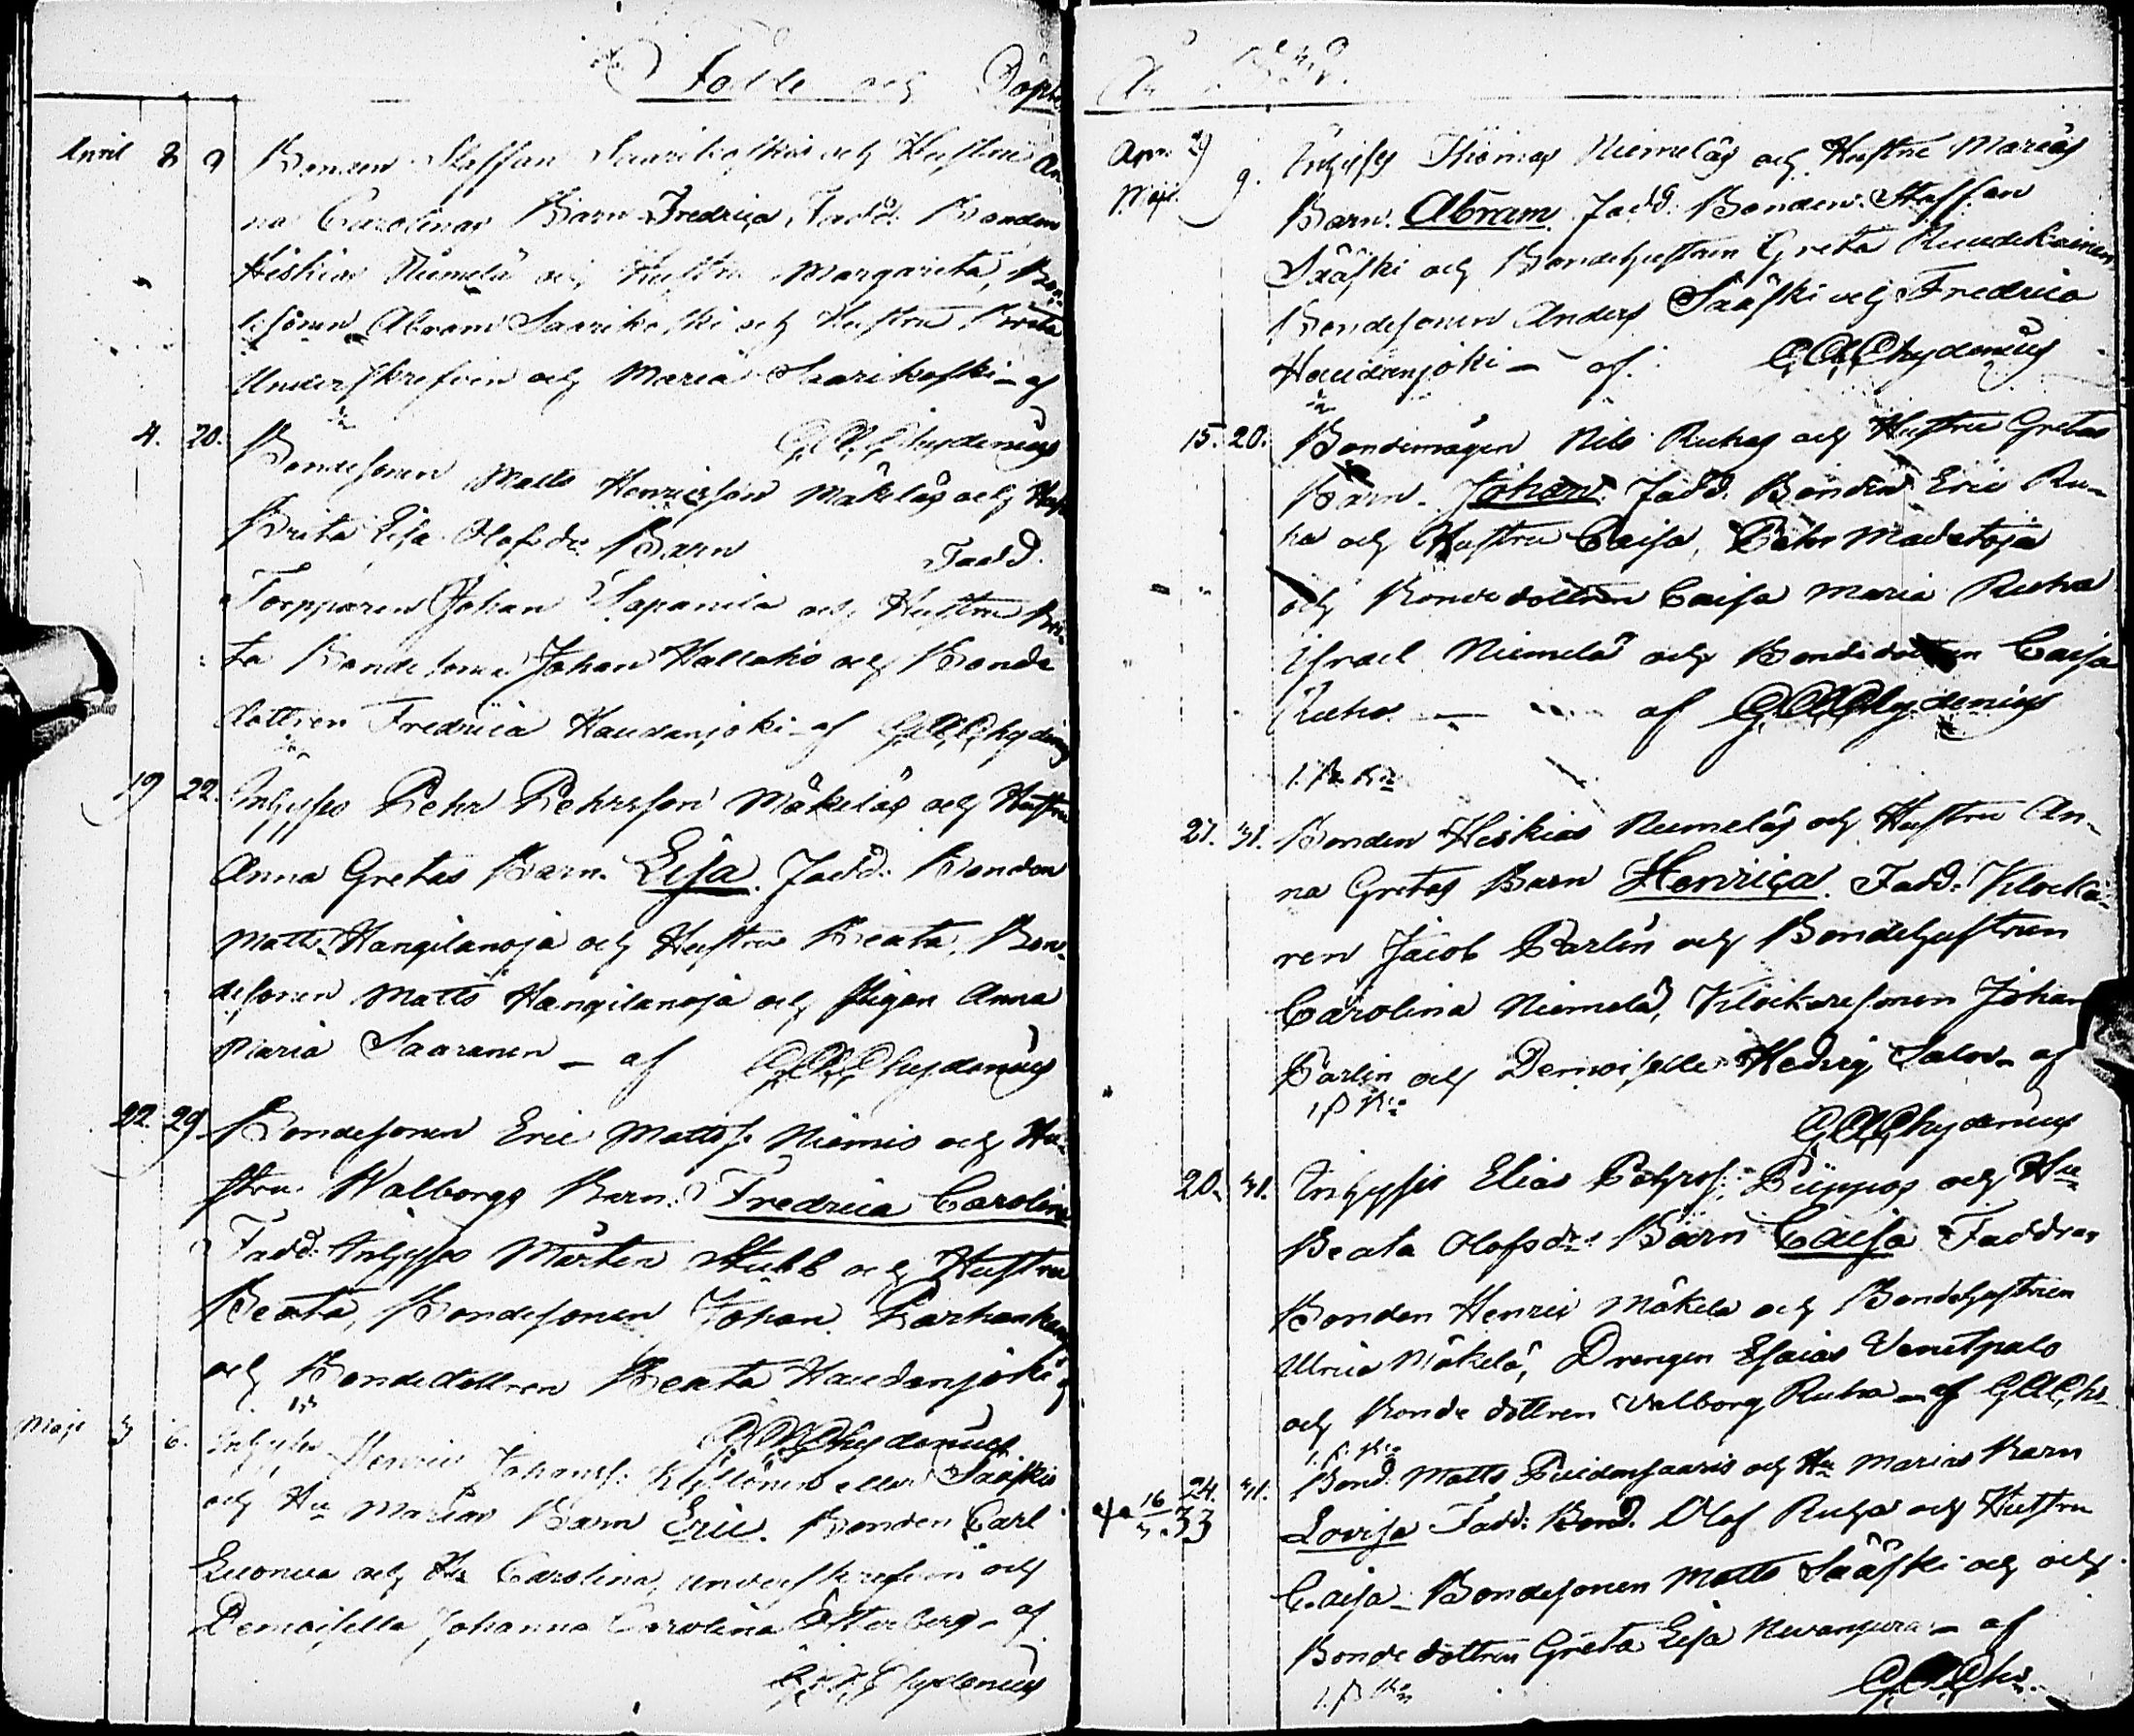 Födde och Döpte
April 8 9 Bonden Staffan Saarikoskis och Hustru An-
na Carolinas Barn Fredrica, Fadd: Bonden
Heskias Niemelä och Hustru Margareta, Bon-
desonen Abram Saarikoski och Hustru Brita
Underskrefven och Maria Saarikoski – af
G.A. Chydenius
4. 20. Bondesonen Matts Henricsson Mäkeläs och Hust
Brita Lisa Olofsdr Barn Fadd.
Torpparen Johan Sapanila och Hustru Bri-
ta Bondesonen Johan Hallaho och Bonde
dottren Fredrica Haudanjoki – af G.A. Chydenius
19 22. Inhyses Pehr Pehrsson Mäkeläs och Hustru
Anna Gretas Barn. Lisa. Fadd: Bonden
Matts Hangilanoja och Hustru Beata, Bon-
desonen Matts Hangilanoja och Pigan Anna
Maria Saaranen – af G.A. Chydenius
22. 29. Bondesonen Eric Mattss. Niemis och Hu-
stru Walborgs Barn. Fredrica Carolina
Fadd: Inhyses Mårten Stubb och Hustru
Beata, Bondesonen Johan
och Bondedottren Beata Haudanjoki af
G.A. Chydenius
Maji 3 6. Inhyses Henric Johanss. eller Sääskis
och Hu Marias Barn Eric. Bonden Carl
Luonua och Hu Carolina, underskrefven och
Demoiselle Johanna Carolina Österberg – af
G.A. Chydenius
År
Apr. 29 9. Inhyses Thomas Niemeläs och Hustru Marias
Maji. Barn. Abram. Fadd: Bonden Staffan
Sääski och Bondehustrun Greta
Bondesonen Anders Sääski och Fredrica
Haudanjoki – af G.A. Chydenius
15. 20. Bondemågen Nils Ruhas och Hustru Gretas
Barn. Johan. Fadd: Bonden Eric Ru-
ha och Hustru Caisa, Pehr Madetoja
och Bondedottren Caisa Maria Ruha
Israel Niemelä och Bondedottren Caisa
Ruha – af G.A. Chydenius
27. 31. Bonden Heskias Niemeläs och Hustru An-
na Gretas Barn Henrica. Fadd: Klocka-
ren Jacob Parlin och Bondehustrun
Carolina Niemelä, Klockaresonen Johan
Parlin och Demoiselle Hedvig Salov– af
G.A. Chydenius
20. 31. Inhyses Elias Pehrss: Piippos och Hu
Beata Olofsdr: Barn Caisa Faddrar
Bonden Henric Mäkelä och Bondehustrun
Ulrica Mäkelä, Drengen Esaias Venetpalo
och Bonde dottren Valborg Ruha – af G.A. Chs.
24. 31. Bond. Matts Puidansaaris och Hu Marias Barn
16 33 Lovisa Fadd: Bond. Olof Ruha och Hustru
Caisa – Bondesonen Matts Sääski och och
Bonde dottren Greta Lisa – af
G.A. Chs.